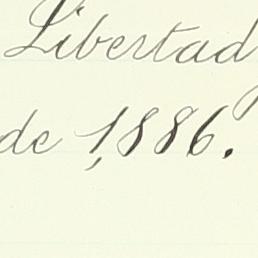 Libertad
de 1,886.